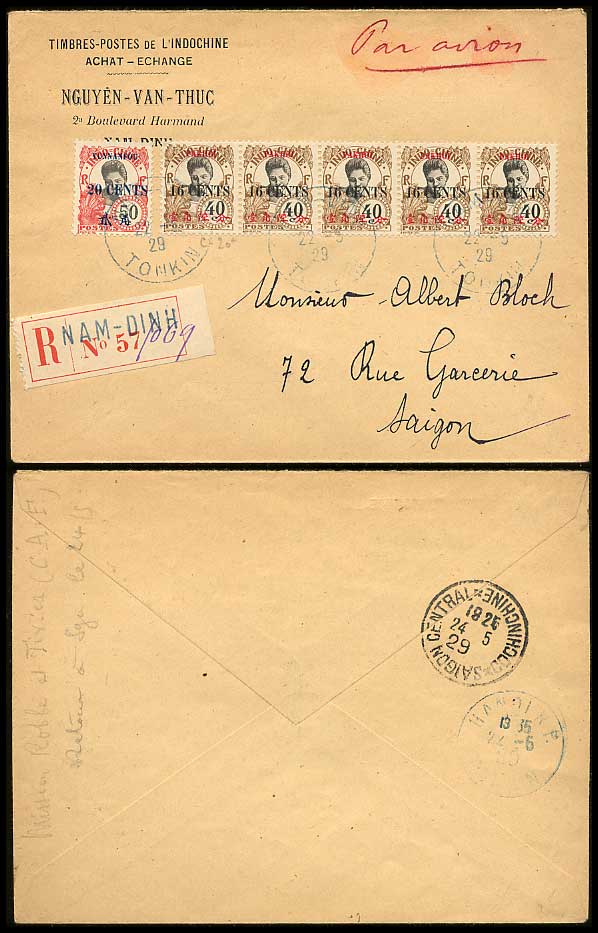 TIMBRES-POSTES DE L'INDOCHINE
ACHAT – ECHANGE
NGUYÊN-VAN-THUC
2ᵈ Boulevard Harmand
NAM-DINH
Par avion
YUNNANFOU
20 CENTS
50
POSTES
INDO-CHINE
R F
16 CENTS
40
POSTES
INDO-CHINE
R F
16 CENTS
40
POSTES
INDO-CHINE
R F
16 CENTS
40
POSTES
INDO-CHINE
R F
16 CENTS
40
POSTES
INDO-CHINE
R F
16 CENTS
40
POSTES
29
TONKIN
22 -5
29
22 -5
29
TONKIN
R NAM-DINH
Nº 57
Monsieur Albert Bloch
72 Rue Garcerie
Saigon
SAIGON CENTRAL
COCHINCHINE
18 25
24 5
29
HANOI R.P.
13 35
Mission Robbe et
Retour à Sgn le 24/5